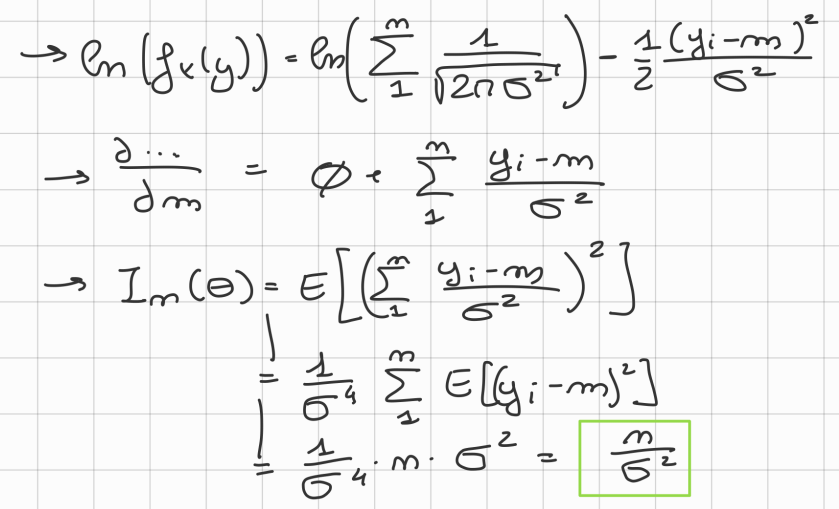 → ln(fx(y)) = ln(∑₁ⁿ 1/√(2πσ²)) - 1/2 (yᵢ-m)²/σ²
→ ∂.../∂m = ∅ + ∑₁ⁿ (yᵢ-m)/σ²
→ Iₙ(θ) = E[(∑₁ⁿ (yᵢ-m)/σ²)²]
= 1/σ⁴ ∑₁ⁿ E[(yᵢ-m)²]
= 1/σ⁴ · n · σ² = n/σ²